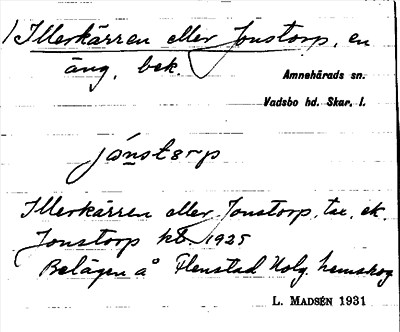 1) Illerkärren eller Jonstorp, en
äng, bek.
Amnehärads sn.
Vadsbo hd. Skar. l.
jónstərp
Illerkärren eller Jonstorp, tax. ek.
Jonstorp kb. 1925
Belägen å Flenstad Holg. hemskog
L. MADSÉN 1931